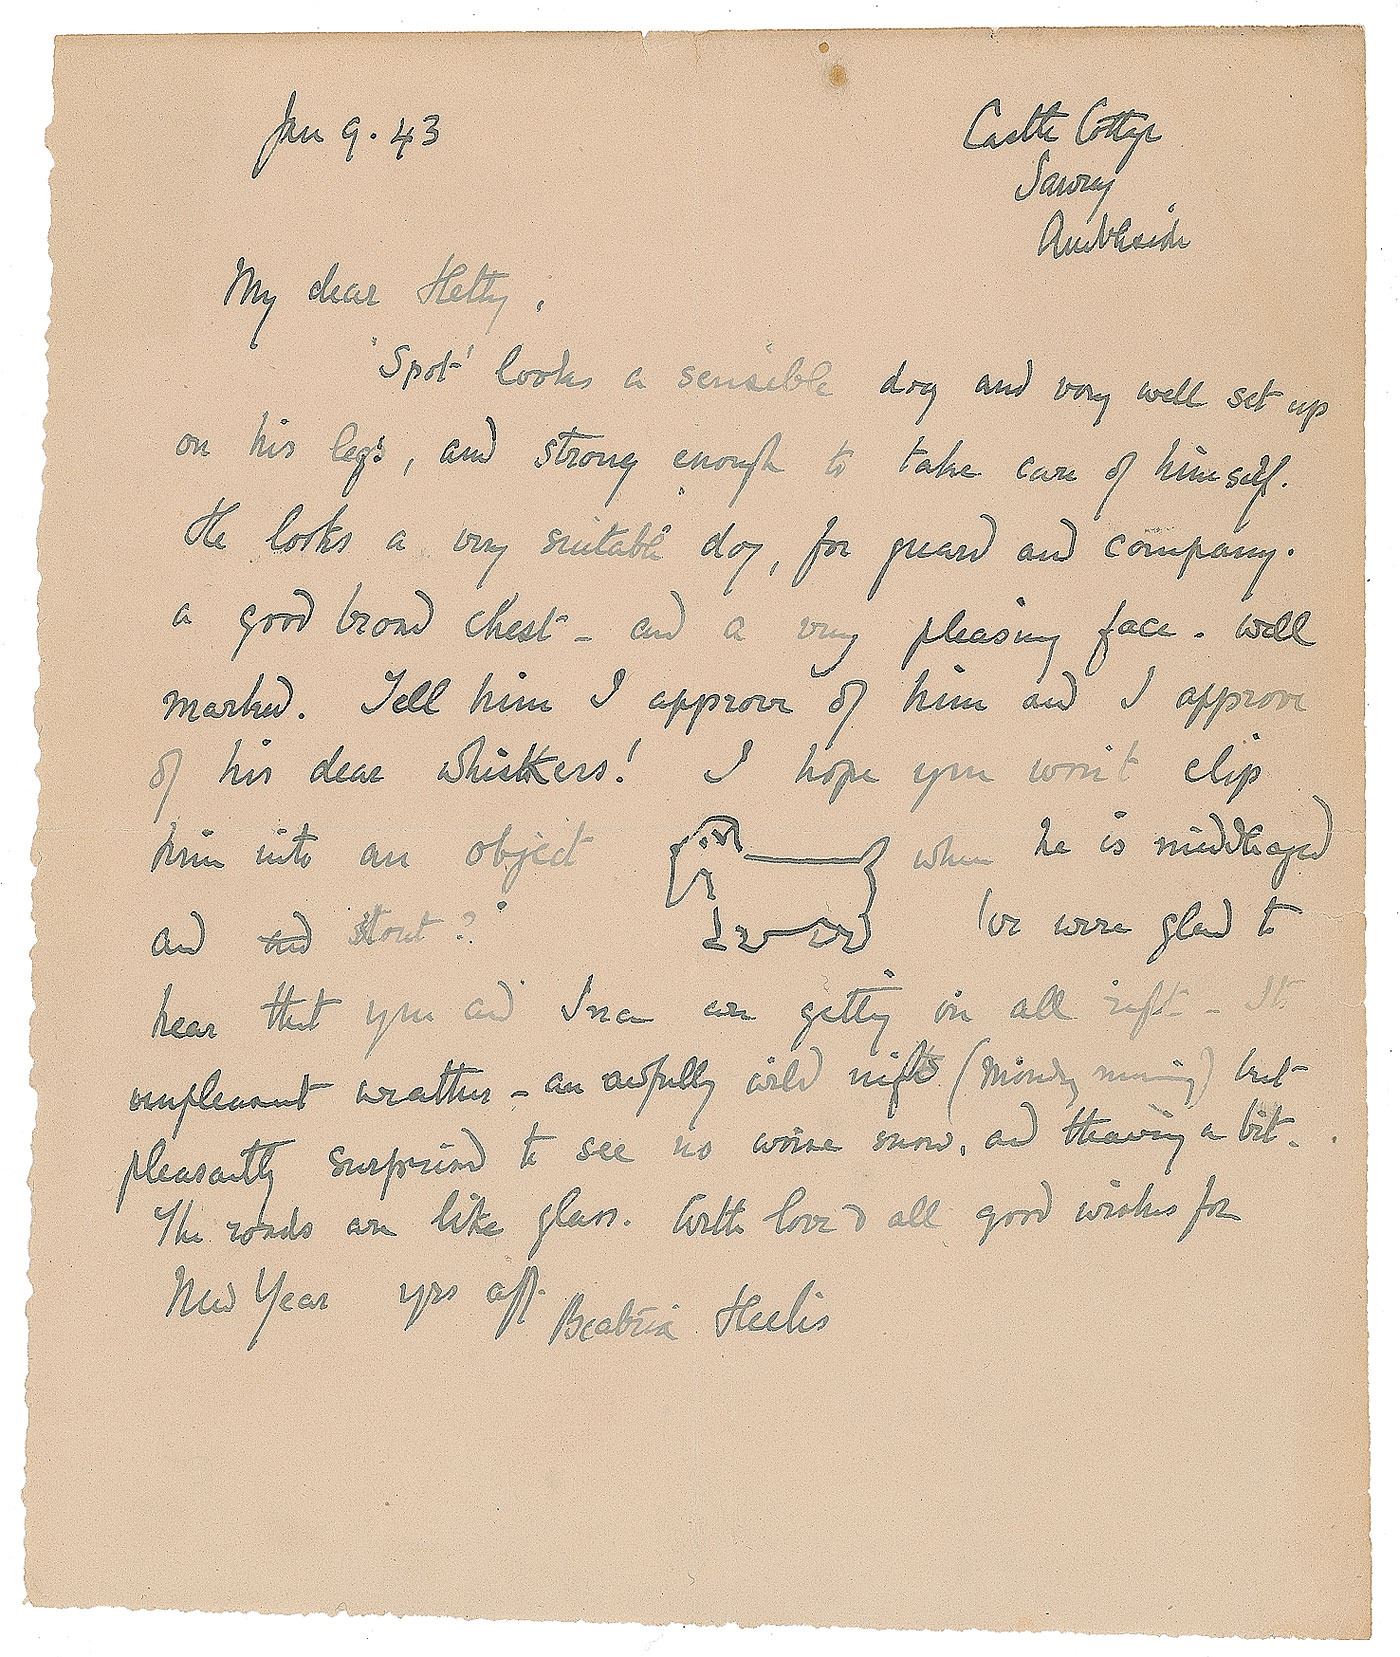 Jan 9. 43
Castle Cottage
Sawrey
Ambleside
My dear Hetty,
'Spot' looks a sensible dog and very well set up
on his legs, and strong enough to take care of himself.
He looks a very suitable dog, for guard and company.
a good broad chest - and a very pleasing face. well
marked. Tell him I approve of him and I approve
of his dear whiskers! I hope you won't clip
him into an object when he is middleaged
and and stout? We were glad to
hear that you and are getting on all right - It
unpleasant weather - an awfully wild night (Monday morning) but
pleasantly surprised to see no worse snow, and thawing a bit.
The roads are like glass. With love & all good wishes for
New Year yrs aff.
Beatrix Heelis